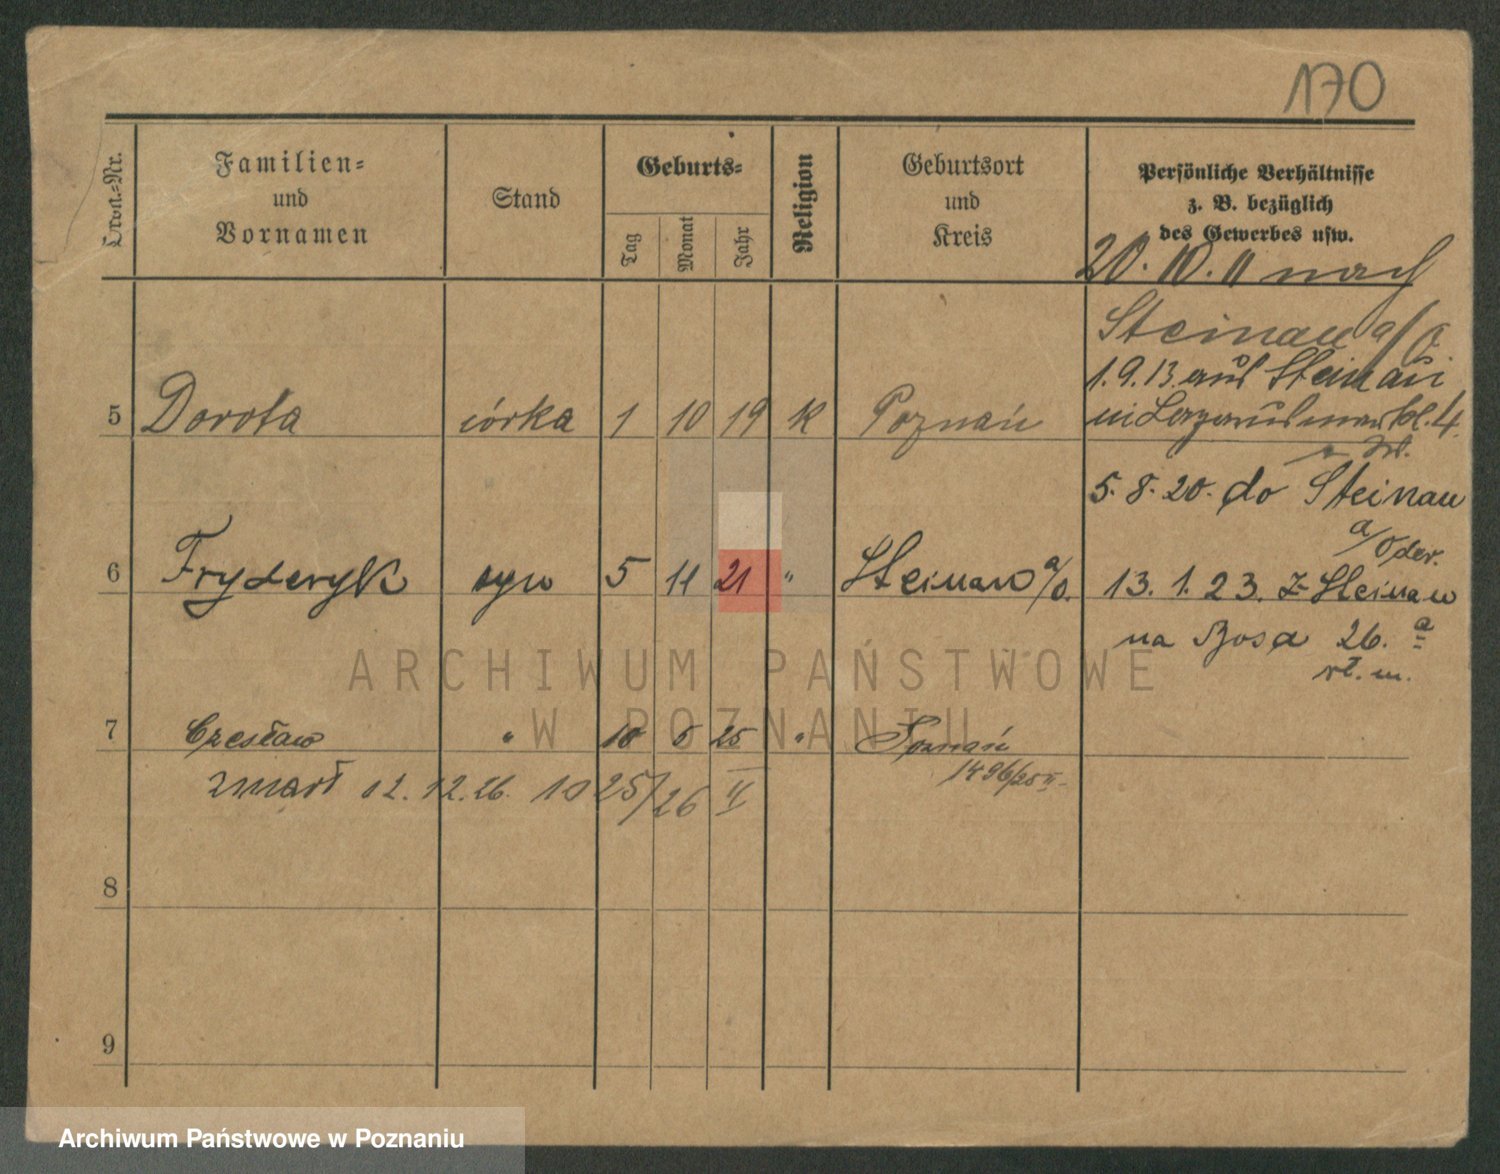 170
Ordn.-Nr.
Familien-
und
Vornamen
Stand
Geburts-
Tag
Monat
Jahr
Religion
Geburtsort
und
Kreis
Persönliche Verhältnisse
z. B. bezüglich
des Gewerbes usw.
20. 10. 11 nach
Steinau a/O
1. 9. 13. aus Steinau
4.
5 Dorota córka 1 10 19 K Poznań
5. 8. 20. do Steinau
a/Oder.
6 Fryderyk syn 5 11 21 " Steinau a/O.
13. 1. 23. z Steinau
na 26. a
7 Czesław " 10 5 25 " Poznań
1496/25 II
zmarł 12. 12. 26. 1025/26 II
8
9
ARCHIWUM PAŃSTWOWE
W POZNANIU
Archiwum Państwowe w Poznaniu